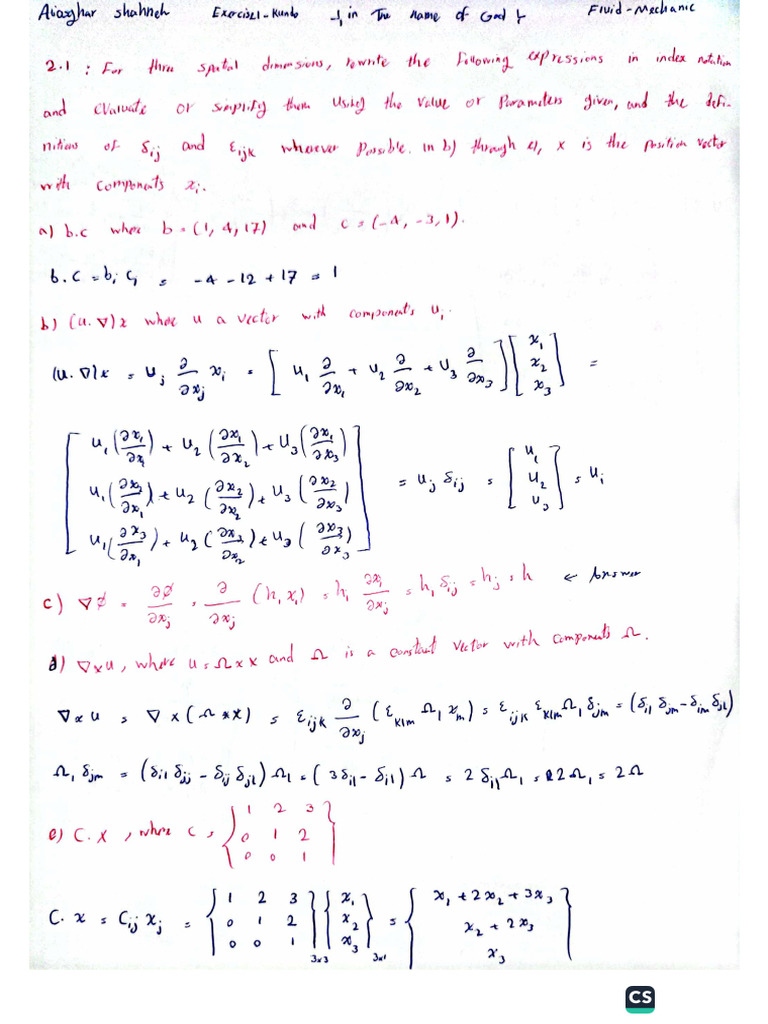 Aliasghar Shahneh Exercise1-Kundu In The Name of God Fluid-Mechanic
2.1 : For three spatial dimensions, rewrite the following expressions in index notation
and evaluate or simplify them using the value or Parameters given, and the defi-
nitions of δij and εijk wherever Possible. in b) through e), x is the position vector
with components xi.
a) b.c where b = (1, 4, 17) and c = (-4, -3, 1).
b.c = bi ci = -4 -12 + 17 = 1
b) (u.∇)x where u a vector with components ui.
(u.∇)x = uj ∂/∂xj xi = [u1 ∂/∂x1 + u2 ∂/∂x2 + u3 ∂/∂x3] [x1 x2 x3] =
[u1(∂x1/∂x1) + u2(∂x1/∂x2) + u3(∂x1/∂x3)
u1(∂x2/∂x1) + u2(∂x2/∂x2) + u3(∂x2/∂x3)
u1(∂x3/∂x1) + u2(∂x3/∂x2) + u3(∂x3/∂x3)] = uj δij = [u1 u2 u3] = ui
c) ∇φ = ∂φ/∂xj = ∂/∂xj (hi xi) = hi ∂xi/∂xj = hi δij = hj = h ← Answer
d) ∇×u, where u = Ω×x and Ω is a constant vector with components Ω.
∇×u = ∇×(Ω×x) = εijk ∂/∂xj (εklm Ωl xm) = εijk εklm Ωl δjm = (δil δjm - δim δjl)
Ωl δjm = (δil δjj - δij δjl) Ωl = (3δil - δil) Ω = 2 δil Ωl = 2Ωl = 2Ω
e) C.x, where C = {1 2 3
0 1 2
0 0 1}
C.x = Cij xj = {1 2 3 0 1 2 0 0 1}3×3 {x1 x2 x3}3×1 = {x1 + 2x2 + 3x3
x2 + 2x3
x3}
CS